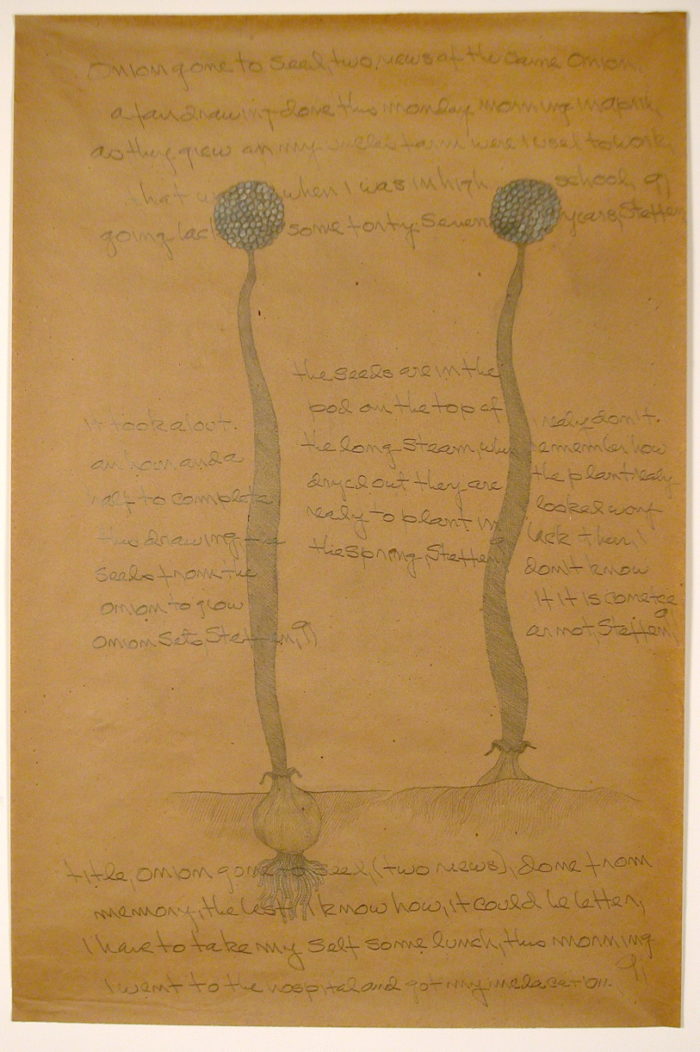 onion gone to seed, two, views of the same onion.
a fan drawing done this monday morning in april,
as they grew on my uncles farm were I used to work,
that when I was in high school, 91
going back some forty seven years, Steffen
the seeds are in the
pod on the top of
the long steam, when
dryed out they are
redy to plant in
the spring, Steffen
it took about.
an hour and a
half to complete
this drawing, the
seeds from the
onion to grow
onion sets, Steffen, 91
I realy don't.
remember how
the plant realy
looked way
back then, I
don't know
if it is correct
or not, Steffen, 91
title, onion gone to seed, (two views), done from
memory, the best I know how, it could be better,
I have to take my self some lunch, this morning
I went to the hospital and got my medacation. 91